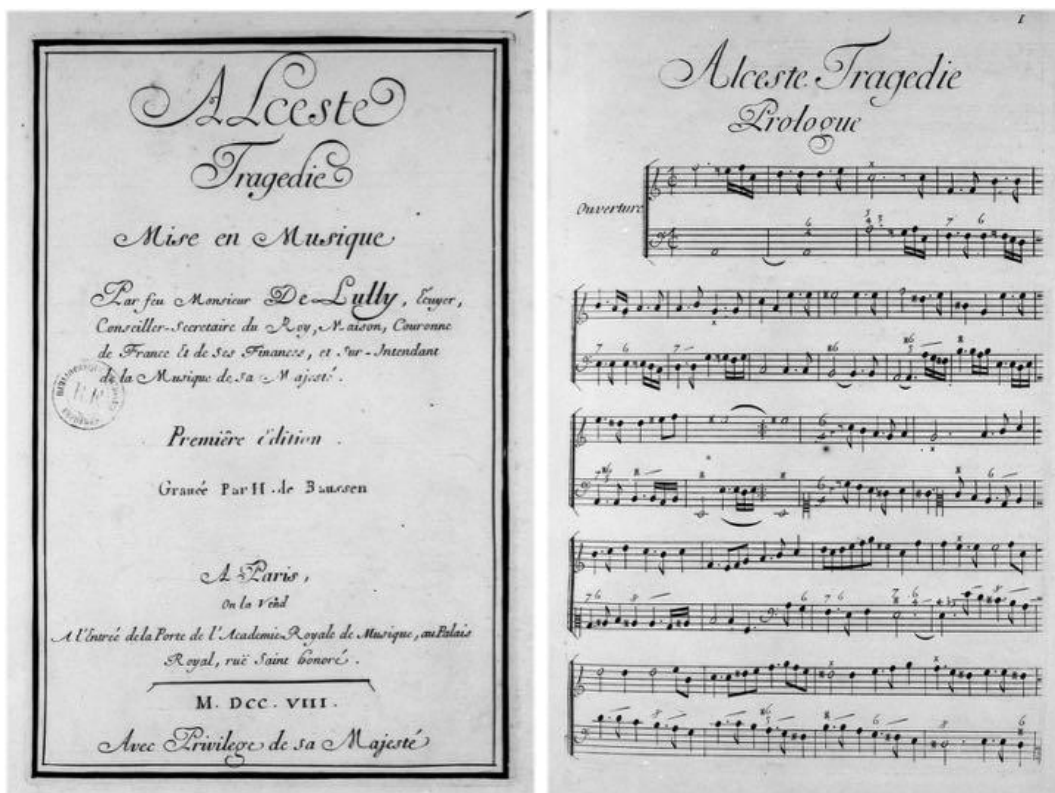 ALceste
Tragedie
Mise en Musique
Par feu Monsieur De Lully, Ecuyer,
Conseiller-Secretaire du Roy, Maison, Couronne
de France Et de Ses Finances, et Sur-Intendant
de la Musique de sa Majesté.
Première Edition.
Gravée Par H. de Baussen
A Paris,
On la Vend
A l'Entreé de la Porte de l'Academie Royale de Musique, au Palais
Royal, ruë Saint honoré.
M. DCC. VIII.
Avec Privilege de sa Majesté
I
Alceste Tragedie
Prologue
Ouverture